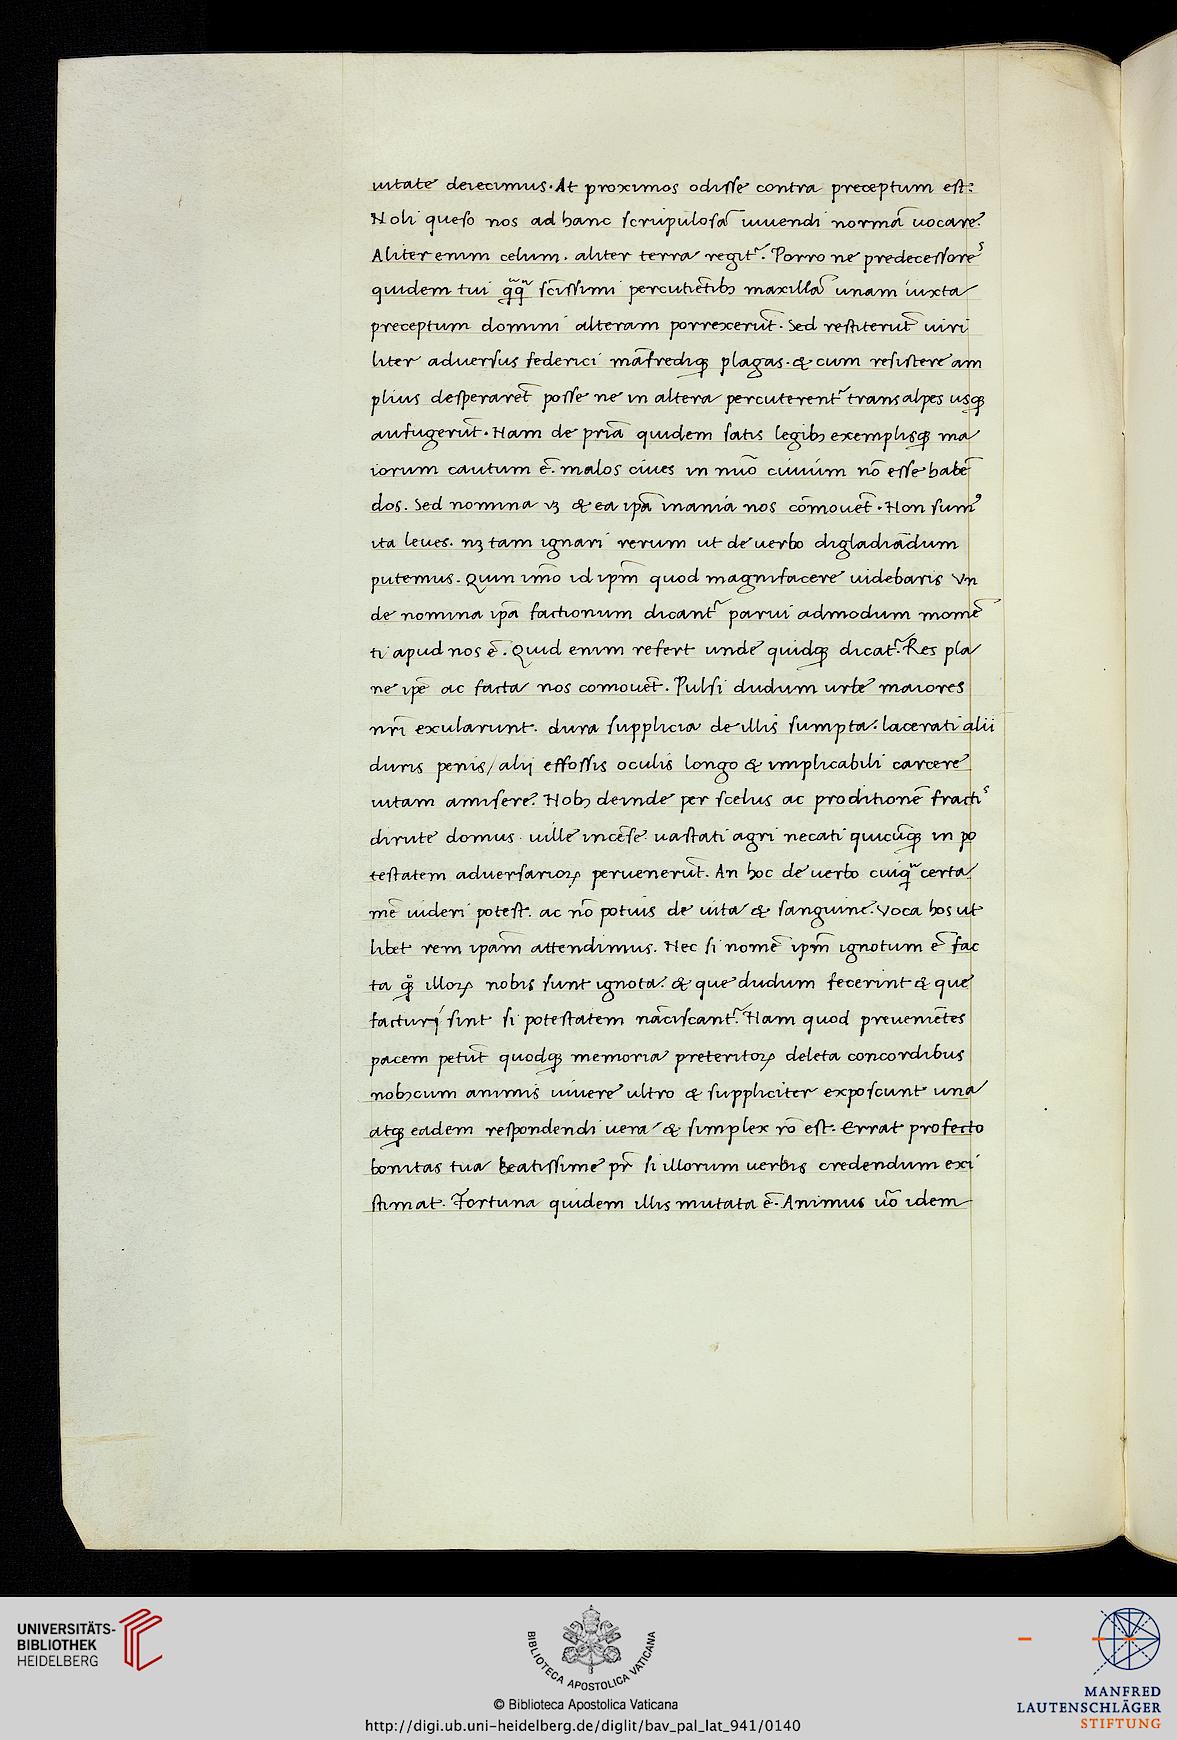 uitate deiecimus. At proximos odisse contra preceptum est:
Noli queso nos ad hanc scrupulosā uiuendi normā uocare.
Aliter enim celum. aliter terra regit᷑. Porro ne predecessores
quidem tui qq̃ sc̄issimi percutiētibȝ maxillā unam iuxta
preceptum domini alteram porrexerūt. Sed restiterūt uiri
liter aduersus federici māfrediqȝ plagas. & cum resistere am
plius desperarēt posse ne in altera percuterent᷑ transalpes usqȝ
aufugerūt. Nam de priā quidem satis legibȝ exemplisqȝ ma
iorum cautum ē. malos ciues in nūo ciuium nō esse habē
dos. Sed nomina uȝ & ea ipā inania nos cōmouēt. Non sumꝰ
ita leues. nȝ tam ignari rerum ut de uerbo digladiādum
putemus. Quin imō id ipm̄ quod magnifacere uidebaris Vn
de nomina ipā factionum dicant᷑ parui admodum momē
ti apud nos ē. Quid enim refert unde quidqȝ dicat᷑. Res pla
ne ipē ac facta nos comouēt. Pulsi dudum urbe maiores
nr̄i exularunt. dura supplicia de illis sumpta. lacerati alii
duris penis/ alij effossis oculis longo & implicabili carcere
uitam amisere. Nobȝ deinde per scelus ac proditionē fractis
dirute domus. uille incēse. uastati agri necati quicūqȝ in po
testatem aduersarioꝝ peruenerūt. An hoc de uerbo cuiqͣ certa
mē uideri potest. ac nō potuis de uita & sanguine. Voca hos ut
libet rem ipam̄ attendimus. Nec si nomē ipm̄ ignotum ē fac
ta qȝ illoꝝ nobis sunt ignota. & que dudum fecerint & que
facturi sint si potestatem nāciscant᷑. Nam quod preueniētes
pacem petūt quodqȝ memoria preteritoꝝ deleta concordibus
nobȝcum animis uiuere ultro & suppliciter exposcunt una
atqȝ eadem respondendi uera & simplex rō est. Errat profecto
bonitas tua beatissime pr̄ si illorum uerbis credendum exi
stimat. Fortuna quidem illis mutata ē. Animus uō idem
UNIVERSITÄTS-
BIBLIOTHEK
HEIDELBERG
BIBLIOTECA APOSTOLICA VATICANA
© Biblioteca Apostolica Vaticana
http://digi.ub.uni-heidelberg.de/diglit/bav_pal_lat_941/0140
MANFRED
LAUTENSCHLÄGER
STIFTUNG